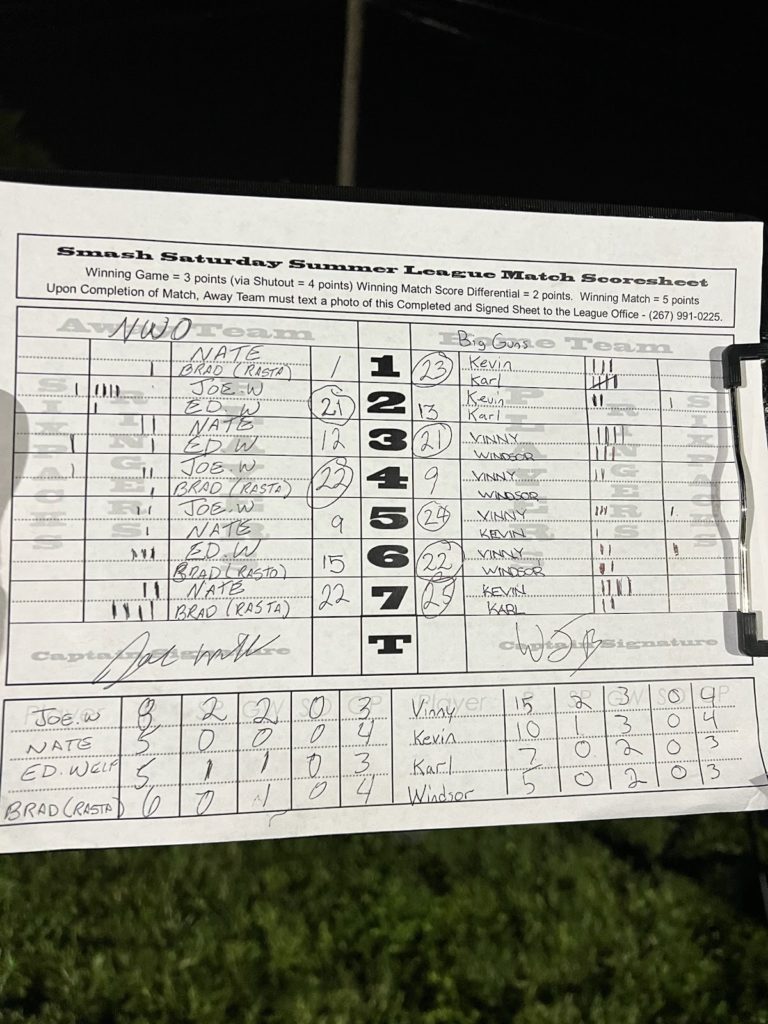 Smash Saturday Summer League Match Scoresheet
Winning Game = 3 points (via Shutout = 4 points) Winning Match Score Differential = 2 points. Winning Match = 5 points
Upon Completion of Match, Away Team must text a photo of this Completed and Signed Sheet to the League Office - (267) 991-0225.
Away Team NWO Home Team Big Guns
NATE 1 1 23 Kevin
BRAD (RASTA) Karl
JOE.W 21 2 13 Kevin
ED.W Karl
NATE 12 3 21 VINNY
ED.W WINDSOR
JOE.W 22 4 9 VINNY
BRAD (RASTA) WINDSOR
JOE.W 9 5 24 VINNY
NATE KEVIN
ED.W 15 6 22 VINNY
BRAD (RASTA) WINDSOR
NATE 22 7 25 KEVIN
BRAD (RASTA) KARL
Captain Signature T Captain Signature
JOE.W 8 2 2 0 3 Vinny 15 2 3 0 4
NATE 5 0 0 0 4 Kevin 10 1 3 0 4
ED.WELF 5 1 1 0 3 Karl 7 0 2 0 3
BRAD (RASTA) 6 0 1 0 4 Windsor 5 0 2 0 3